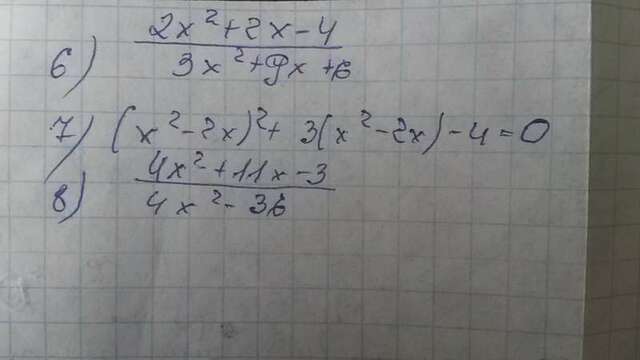 6) 2x²+2x-4 / 3x²+9x+6
7) (x²-2x)²+ 3(x²-2x)-4=0
8) 4x²+11x-3 / 4x²-36